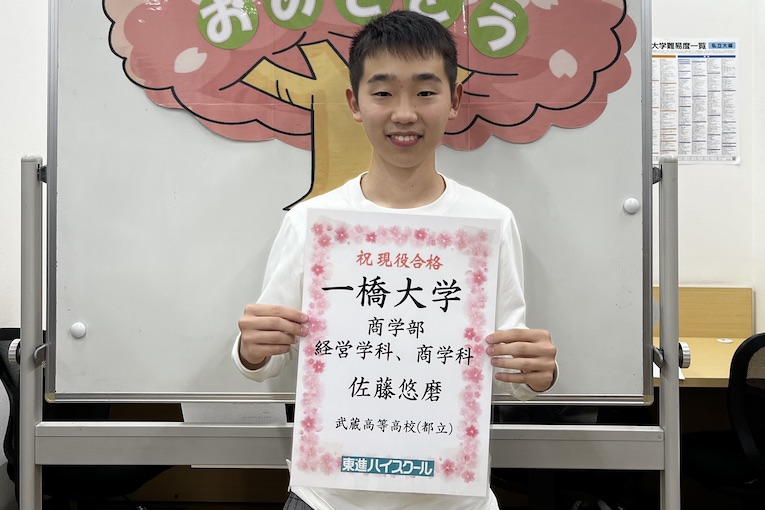 おめでとう
大学難易度一覧 私立大編
祝 現役合格
一橋大学
商学部
経営学科、商学科
佐藤悠磨
武蔵高等高校(都立)
東進ハイスクール